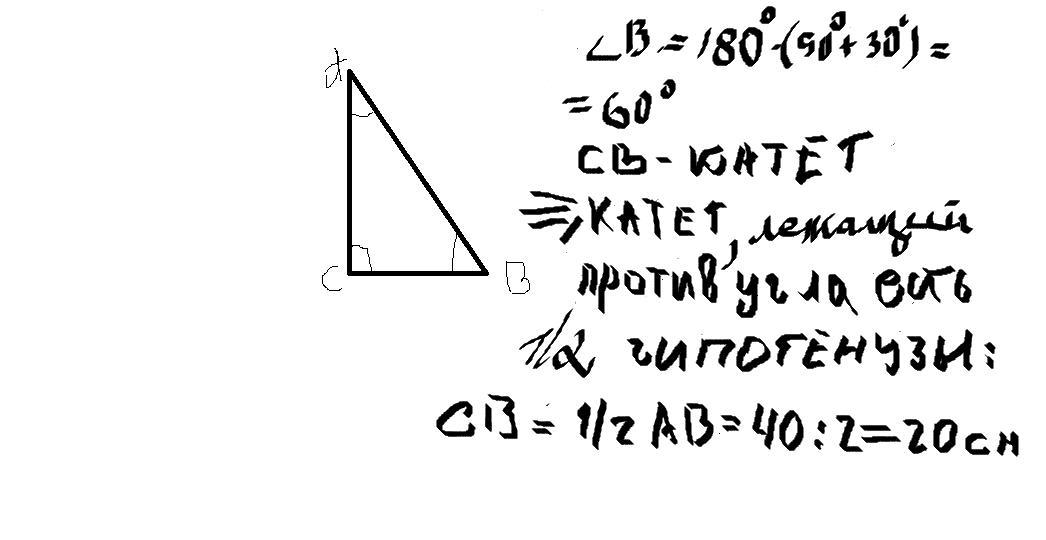 A
C
B
∠B = 180°-(90°+30°) =
= 60°
CB - КАТЕТ
⇒ КАТЕТ, лежащий
против угла есть
1/2 гипотенузы:
CB = 1/2 AB = 40 : 2 = 20 см